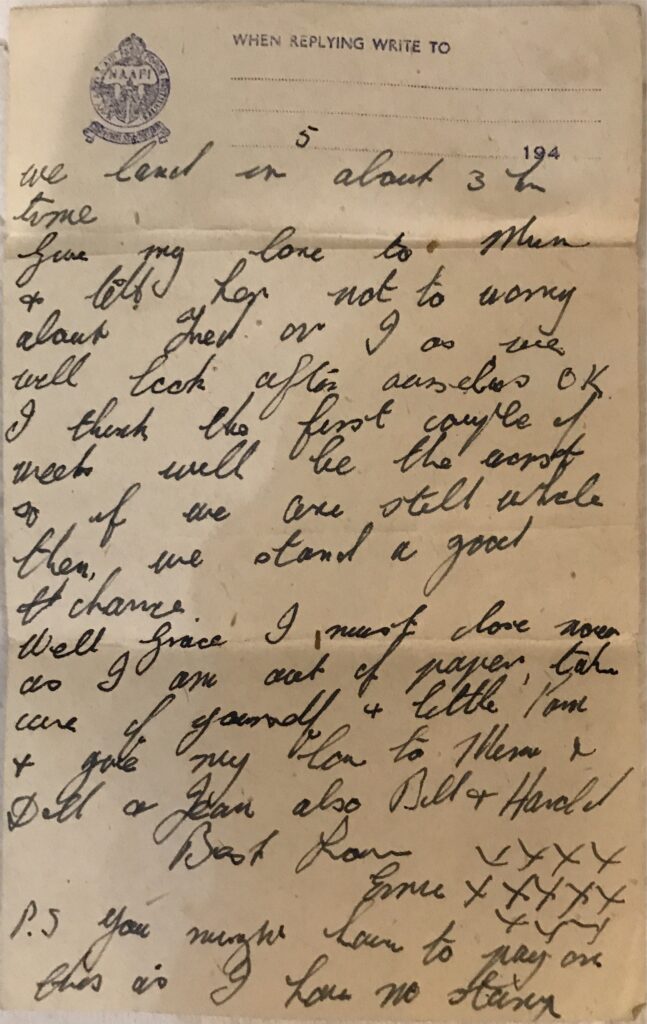 NAAFI
WHEN REPLYING WRITE TO
5
194
we land in about 3 hr
time
Give my love to Mum
& tell her not to worry
about Fred or I as we
will look after ourselves OK
I think the first couple of
weeks will be the worst
so if we are still whole
then, we stand a good
chance.
Well Grace I must close now
as I am out of paper, take
care of yourself & little Pam
& give my love to Mum &
Doll & Jean also Bill & Harold
Best Love XXXX
Ernie XXXXX
XXX
P.S you might have to pay on
this as I have no stamp